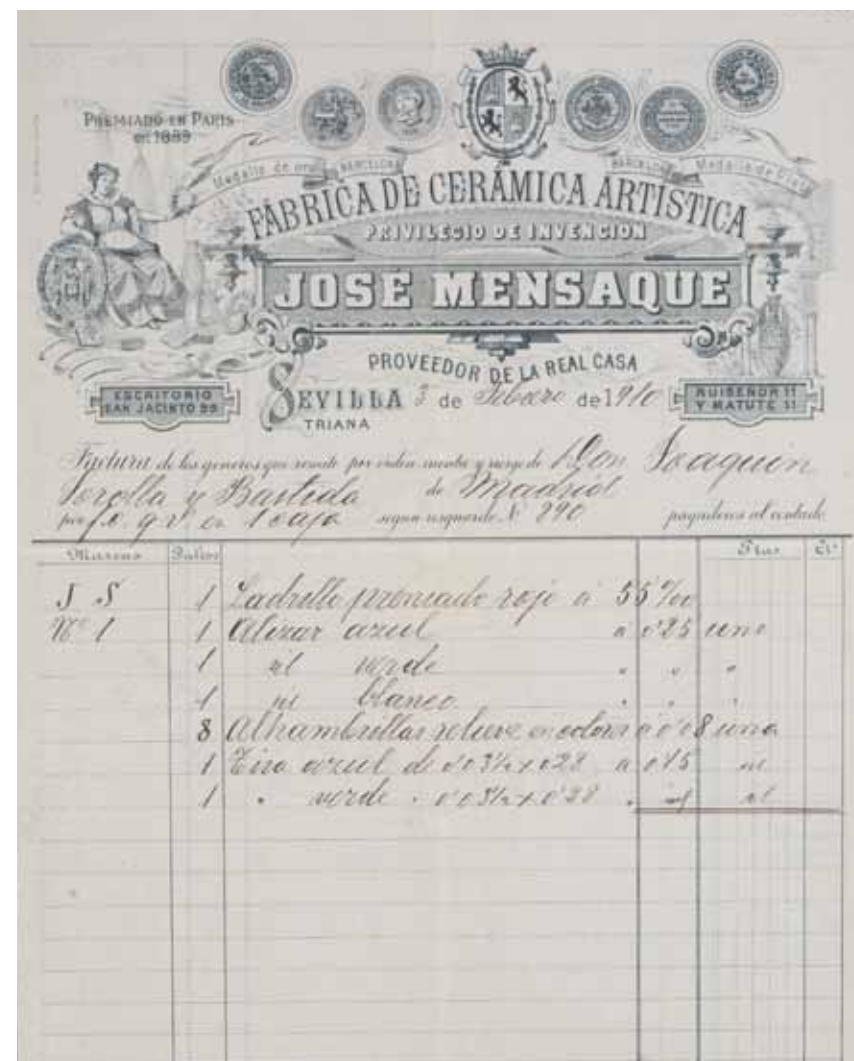 PREMIADO EN PARIS
en 1889
Medalla de oro BARCELONA BARCELONA Medalla de Plata
FÁBRICA DE CERÁMICA ARTÍSTICA
PRIVILEGIO DE INVENCION
JOSÉ MENSAQUE
PROVEEDOR DE LA REAL CASA
ESCRITORIO
SAN JACINTO 99
SEVILLA 3 de Febrero de 1910
TRIANA
RUISEÑOR 11
Y MATUTE 11
Factura de los generos que remite por orden cuenta y riesgo de Don Joaquin
Sorolla y Bastida de Madrid
por f.c. g v en 1 caja segun resguardo Nº 890 pagaderos al contado
Marcas Bultos Ptas Cs
J S 1 Ladrillo prensado rojo á 55 %00
Nº 1 1 Alizar azul a 0'25 uno
1 id verde " " "
1 id blanco " " "
8 Alhambrillas relieve en colores a 0'08 una
1 Tira azul de 0'03½ x 0'28 a 0'15 id
1 " verde " 0'03½ x 0'28 " id id